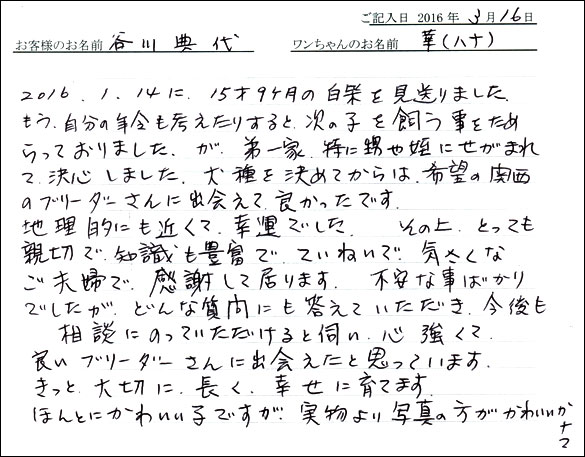 ご記入日 2016 年 3月16日
お客様のお名前 谷川典代 ワンちゃんのお名前 華(ハナ)
2016.1.14に、15才9ヶ月の白柴を見送りました。
もう、自分の年令も考えたりすると、次の子を飼う事をため
らっておりました、が、弟一家、特に甥や姪にせがまれ
て、決心しました。犬種を決めてからは、希望の関西
のブリーダーさんに出会えて、良かったです。
地理的にも近くて、幸運でした。 その上、とっても
親切で、知識も豊富で、ていねいで、気さくな
ご夫婦で、感謝して居ります。 不安な事ばかり
でしたが、どんな質問にも答えていただき、今後も
相談にのっていただけると伺い、心強くて、
良いブリーダーさんに出会えたと思っています。
きっと、大切に、長く、幸せに育てます。
ほんとにかわいい子ですが、実物より写真の方がかわいいか
ナ?